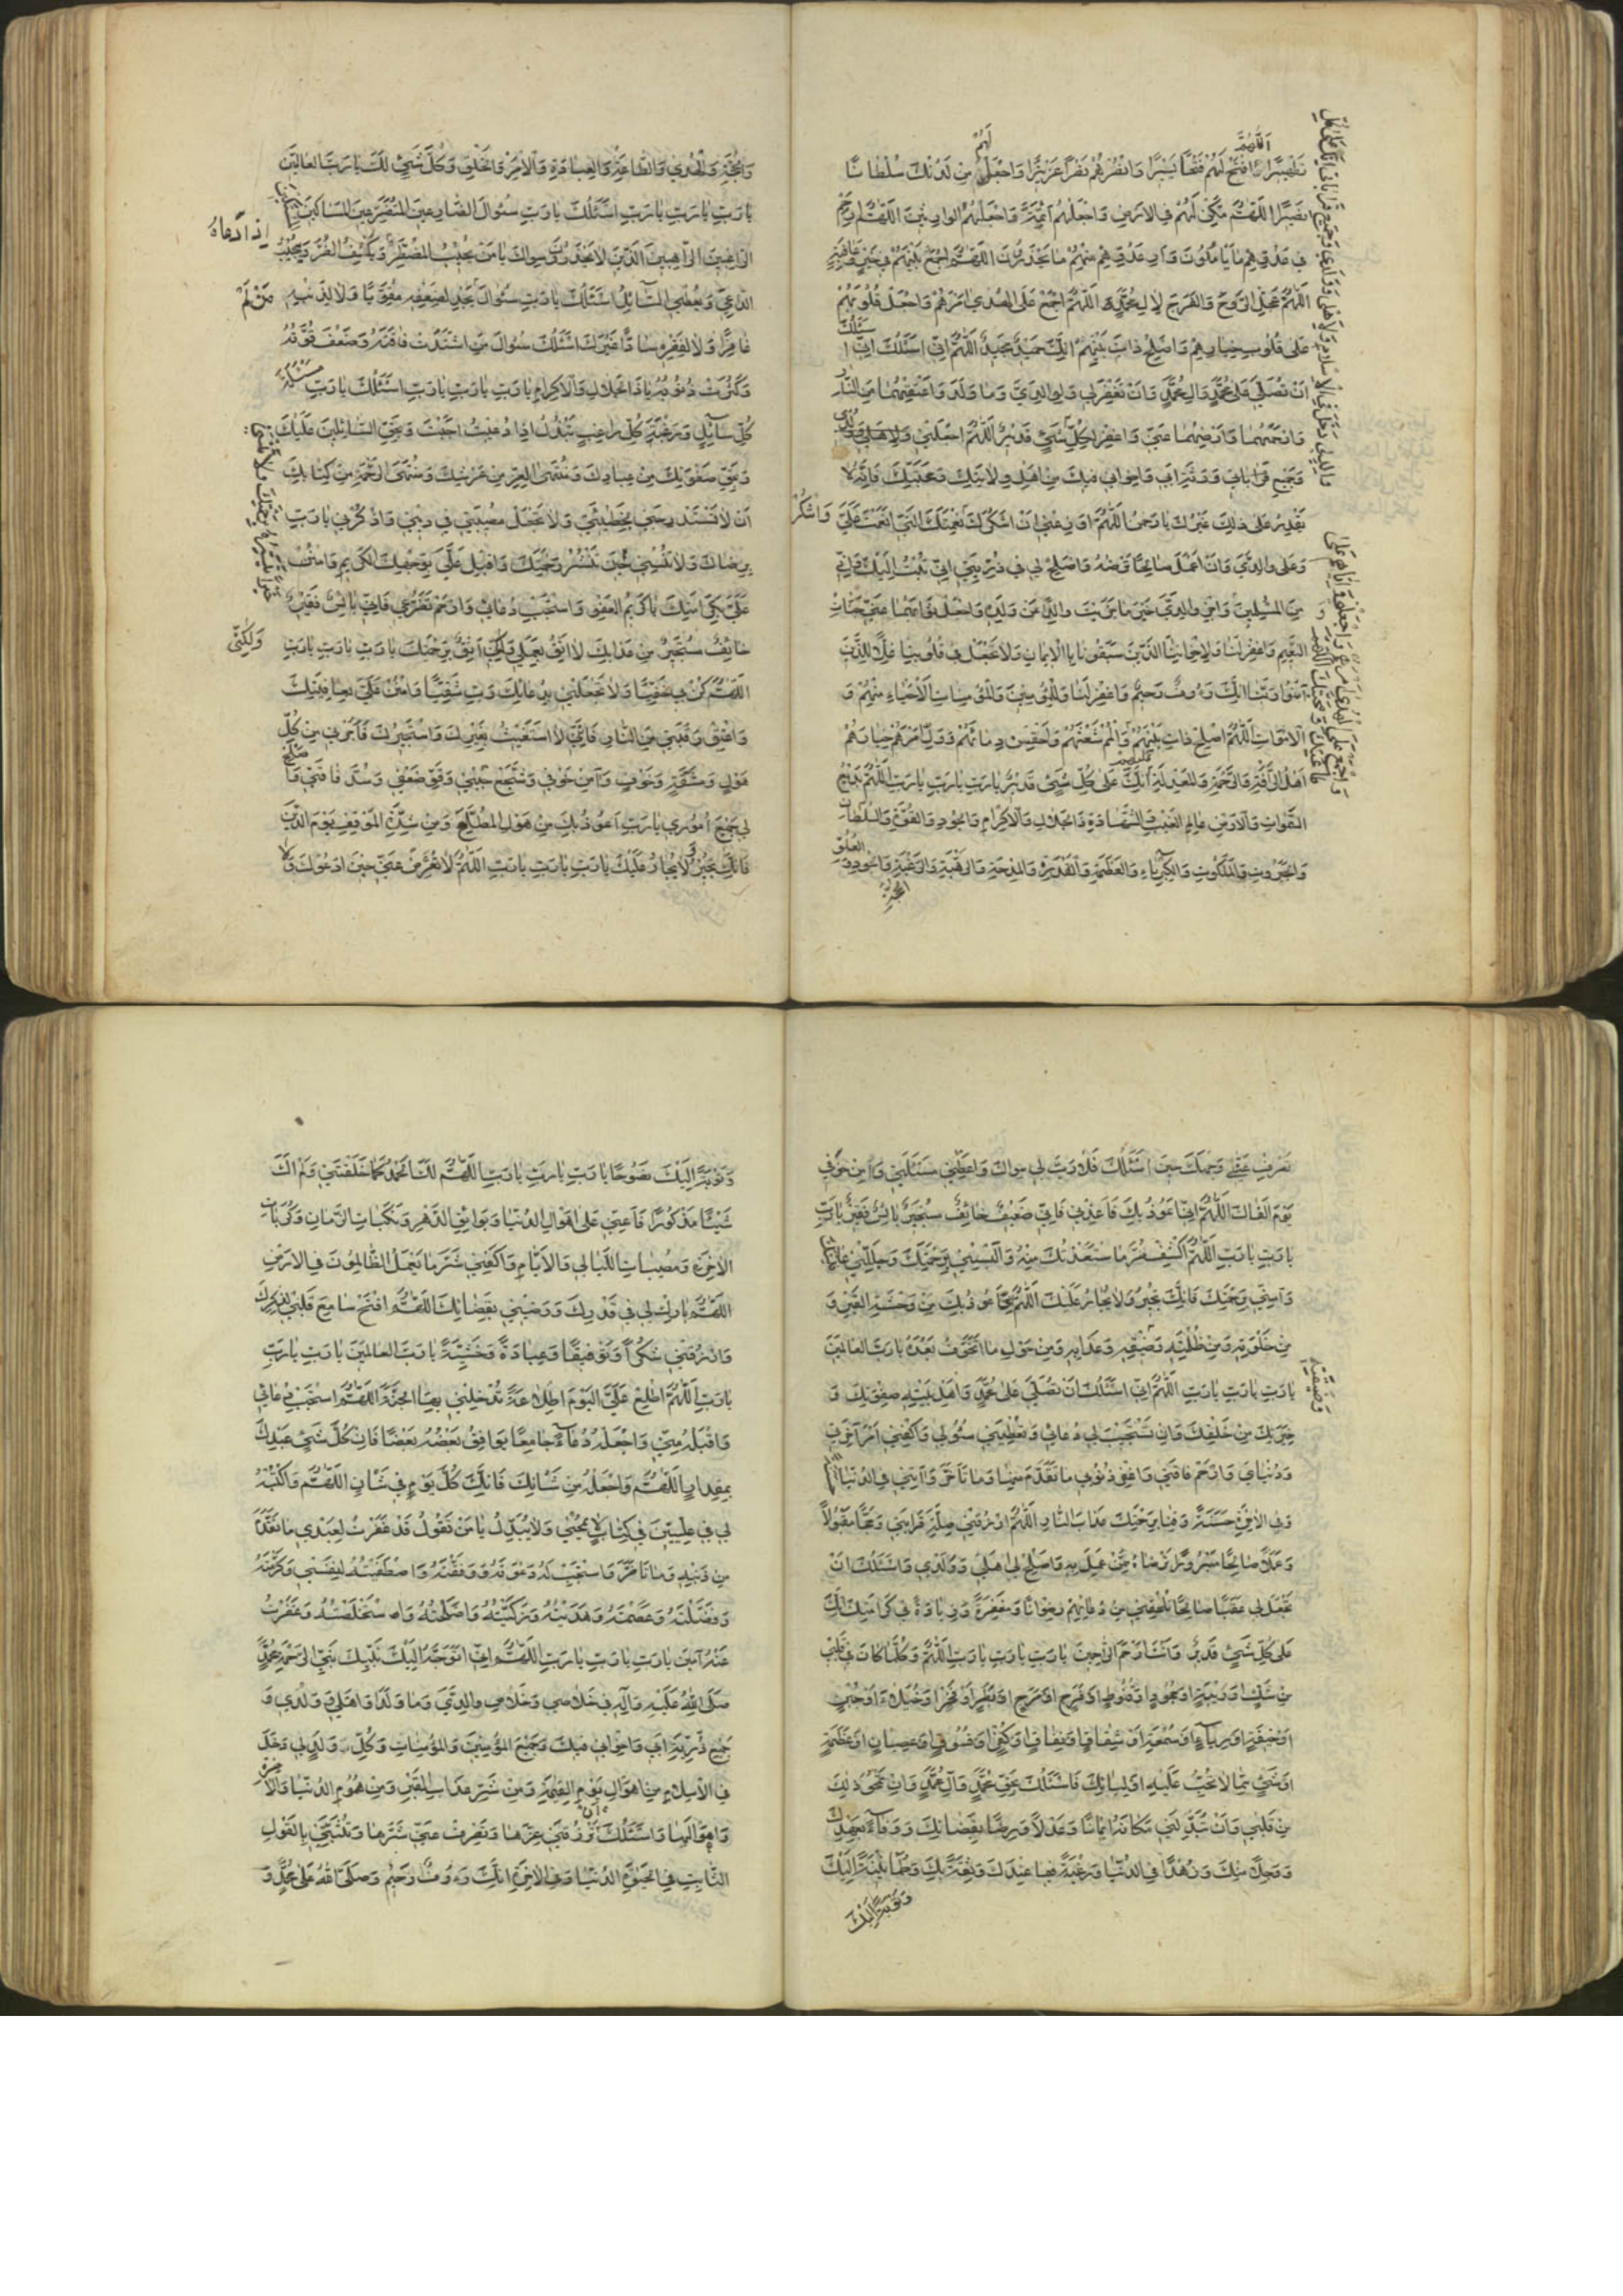 تَطْهِيرًا وَافْتَحْ لَهُمْ فَتْحًا يَسِيرًا وَانْصُرْهُمْ نَصْرًا عَزِيزًا وَاجْعَلْ لَهُمْ مِنْ لَدُنْكَ سُلْطَانًا
نَصِيرًا اللّٰهُمَّ مَكِّنْ لَهُمْ فِي الْأَرْضِ وَاجْعَلْهُمْ أَئِمَّةً وَاجْعَلْهُمُ الْوَارِثِينَ اللّٰهُمَّ أَرِهِمْ
فِي عَدُوِّهِمْ مَا يَأْمُلُونَ وَأَرِ عَدُوَّهِمْ مِنْهُمْ مَا يَحْذَرُونَ اللّٰهُمَّ اجْمَعْ بَيْنَهُمْ فِي خَيْرٍ وَعَافِيَةٍ
اللّٰهُمَّ عَجِّلِ الرَّوْحَ وَالْفَرَجَ لِآلِ مُحَمَّدٍ اللّٰهُمَّ اجْمَعْ عَلَى الْهُدَى أَمْرَهُمْ وَاجْعَلْ قُلُوبَهُمْ
عَلَى قُلُوبِ خِيَارِهِمْ وَأَصْلِحْ ذَاتَ بَيْنِهِمْ إِنَّكَ حَمِيدٌ مَجِيدٌ اللّٰهُمَّ إِنِّي أَسْئَلُكَ
أَنْ تُصَلِّيَ عَلَى مُحَمَّدٍ وَآلِ مُحَمَّدٍ وَأَنْ تَغْفِرَ لِي وَلِوَالِدَيَّ وَمَا وَلَدَا وَأَعْتِقْهُمَا مِنَ النَّارِ
وَارْحَمْهُمَا وَأَرْضِهِمَا عَنِّي وَاغْفِرْ لِكُلِّ قَدِيرٌ اللّٰهُمَّ اجْعَلْنِي وَلِأَهْلِي وَوُلْدِي
وَجَمِيعَ قَرَابَاتِي وَذُرِّيَّتِي وَإِخْوَانِي فِيكَ مِنْ أَهْلِ وِلَايَتِكَ وَمَحَبَّتِكَ فَإِنَّهُ لَا
يَقْدِرُ عَلَى ذَلِكَ غَيْرُكَ يَا رَحْمٰنُ اللّٰهُمَّ أَوْزِعْنِي أَنْ أَشْكُرَ نِعْمَتَكَ الَّتِي أَنْعَمْتَ عَلَيَّ
وَعَلَى وَالِدَيَّ وَأَنْ أَعْمَلَ صَالِحًا تَرْضَاهُ وَأَصْلِحْ لِي فِي ذُرِّيَّتِي إِنِّي تُبْتُ إِلَيْكَ وَإِنِّي
مِنَ الْمُسْلِمِينَ وَاجْزِ وَالِدَيَّ خَيْرَ مَا جَزَيْتَ وَالِدًا عَنْ وَلَدِهِ وَاجْعَلْ ثَوَابَهُمَا عَنِّي جَنَّاتِ
النَّعِيمِ وَاغْفِرْ لَنَا وَلِإِخْوَانِنَا الَّذِينَ سَبَقُونَا بِالْإِيمَانِ وَلَا تَجْعَلْ فِي قُلُوبِنَا غِلًّا لِلَّذِينَ
آمَنُوا رَبَّنَا إِنَّكَ رَءُوفٌ رَحِيمٌ وَاغْفِرْ لَنَا وَلِلْمُؤْمِنِينَ وَالْمُؤْمِنَاتِ الْأَحْيَاءِ مِنْهُمْ وَ
الْأَمْوَاتِ اللّٰهُمَّ أَصْلِحْ ذَاتَ بَيْنِهِمْ وَالْمُمْ شَعَثَهُمْ وَاحْقِنْ دِمَائَهُمْ وَوَلِّ أَمْرَهُمْ خِيَارَهُمْ
أَهْلَ الرَّأْفَةِ وَالرَّحْمَةِ وَالْمَعْدِلَةِ إِنَّكَ عَلَى كُلِّ شَيْءٍ قَدِيرٌ يَا رَبِّ يَا رَبِّ يَا رَبِّ اللّٰهُمَّ بَدِيعَ
السَّمٰوَاتِ وَالْأَرْضِ عَالِمَ الْغَيْبِ وَالشَّهَادَةِ ذَا الْجَلَالِ وَالْإِكْرَامِ وَالْجُودِ وَالْقُوَّةِ وَالسُّلْطَانِ
وَالْجَبَرُوتِ وَالْمَلَكُوتِ وَالْكِبْرِيَاءِ وَالْعَظَمَةِ وَالْقُدْرَةِ وَالْمِدْحَةِ وَالرَّهْبَةِ وَالرَّغْبَةِ وَالْجُودِ
وَالْحُجَّةِ وَالْهُدَى وَالطَّاعَةِ وَالْعِبَادَةِ وَالْأَمْرِ وَالْخَلْقِ وَكُلُّ شَيْءٍ لَكَ يَا رَبَّ الْعَالَمِينَ
يَا رَبِّ يَا رَبِّ يَا رَبِّ أَسْئَلُكَ يَا رَبِّ سُؤَالَ الضَّارِعِينَ الْمُتَضَرِّعِينَ الْمَسَاكِينَ
الرَّاغِبِينَ الرَّاهِبِينَ الَّذِينَ لَا يَحْذَرُونَ سِوَاكَ يَا مَنْ يُجِيبُ الْمُضْطَرَّ وَيَكْشِفُ الضُّرَّ وَيُجِيبُ
الدَّاعِيَ وَيُعْطِي السَّائِلَ أَسْئَلُكَ يَا رَبِّ سُؤَالَ مَنْ لَمْ يَجِدْ لِضَعْفِهِ مُقَوِّيًا وَلَا لِذَنْبِهِ
غَافِرًا وَلَا لِفَقْرِهِ سَادًّا غَيْرَكَ أَسْئَلُكَ سُؤَالَ مَنِ اشْتَدَّتْ فَاقَتُهُ وَضَعُفَ قُوَّتُهُ
وَكَثُرَتْ ذُنُوبُهُ يَا ذَا الْجَلَالِ وَالْإِكْرَامِ يَا رَبِّ يَا رَبِّ يَا رَبِّ أَسْئَلُكَ يَا رَبِّ مَسْئَلَةَ
كُلِّ سَائِلٍ وَرَغْبَةَ كُلِّ رَاغِبٍ بِيَدِكَ إِذَا دُعِيتَ أَجَبْتَ وَبِحَقِّ السَّائِلِينَ عَلَيْكَ
وَبِحَقِّ صَفْوَتِكَ مِنْ عِبَادِكَ وَمُنْتَهَى الْعِزِّ مِنْ عَرْشِكَ وَمُنْتَهَى الرَّحْمَةِ مِنْ كِتَابِكَ
أَنْ لَا تَسْتَدْرِجَنِي بِخَطِيئَتِي وَلَا تَجْعَلْ مُصِيبَتِي فِي دِينِي وَاذْكُرْنِي يَا رَبِّ
بِرِضَاكَ وَلَا تَنْسَنِي حِينَ تَنْشُرُ رَحْمَتَكَ وَأَقْبِلْ عَلَيَّ بِوَجْهِكَ الْكَرِيمِ وَامْنُنْ
عَلَيَّ بِكَرَامَتِكَ يَا كَرِيمَ الْعَفْوِ وَاسْتَجِبْ دُعَائِي وَارْحَمْ تَضَرُّعِي فَإِنِّي بَائِسٌ فَقِيرٌ
خَائِفٌ مُسْتَجِيرٌ مِنْ عَذَابِكَ لَا أَثِقُ بِعَمَلِي وَلَكِنِّي أَثِقُ بِرَحْمَتِكَ يَا رَبِّ يَا رَبِّ يَا رَبِّ
اللّٰهُمَّ كُنْ بِي حَفِيًّا وَلَا تَجْعَلْنِي بِدُعَائِكَ رَبِّ شَقِيًّا وَامْنُنْ عَلَيَّ بِعَافِيَتِكَ
وَأَعْتِقْ رَقَبَتِي مِنَ النَّارِ فَإِنِّي لَا أَسْتَغِيثُ بِغَيْرِكَ وَأَسْتَجِيرُكَ فَأَجِرْنِي مِنْ كُلِّ
هَوْلٍ وَمَشَقَّةٍ وَخَوْفٍ وَآمِنْ خَوْفِي وَشَجِّعْ جُبْنِي وَقَوِّ ضَعْفِي وَسُدَّ فَاقَتِي وَأَصْلِحْ
لِي جَمِيعَ أُمُورِي يَا رَبِّ أَعُوذُ بِكَ مِنْ هَوْلِ الْمُطَّلَعِ وَمِنْ شِدَّةِ الْمَوْقِفِ يَوْمَ الدِّينِ
فَإِنَّكَ تُجِيرُ وَلَا يُجَارُ عَلَيْكَ يَا رَبِّ يَا رَبِّ يَا رَبِّ اللّٰهُمَّ لَا تُعْرِضْ عَنِّي حِينَ أَدْعُوكَ وَلَا
تَصْرِفْ عَنِّي وَجْهَكَ حِينَ أَسْئَلُكَ فَلَا رَبَّ لِي سِوَاكَ وَأَعْطِنِي مَسْئَلَتِي وَآمِنْ خَوْفِي
يَوْمَ أَلْقَاكَ اللّٰهُمَّ إِنِّي أَعُوذُ بِكَ فَأَعِذْنِي فَإِنِّي ضَعِيفٌ خَائِفٌ مُسْتَجِيرٌ بَائِسٌ فَقِيرٌ يَا رَبِّ
يَا رَبِّ يَا رَبِّ اللّٰهُمَّ اكْشِفْ ضُرَّ مَا اسْتَعَذْتُكَ مِنْهُ وَأَلْبِسْنِي رَحْمَتَكَ وَجَلِّلْنِي عَافِيَتَكَ
وَآمِنِّي بِرَحْمَتِكَ فَإِنَّكَ تُجِيرُ وَلَا يُجَارُ عَلَيْكَ اللّٰهُمَّ إِنِّي أَعُوذُ بِكَ مِنْ وَحْشَةِ الْقَبْرِ وَ
مِنْ خَلْوَتِهِ وَمِنْ ظُلْمَتِهِ وَضِيقِهِ وَعَذَابِهِ وَمِنْ هَوْلِ مَا أَتَخَوَّفُ بَعْدَهُ يَا رَبَّ الْعَالَمِينَ
يَا رَبِّ يَا رَبِّ يَا رَبِّ اللّٰهُمَّ إِنِّي أَسْئَلُكَ أَنْ تُصَلِّيَ عَلَى مُحَمَّدٍ وَأَهْلِ بَيْتِهِ صَفْوَتِكَ وَ
خِيَرَتِكَ مِنْ خَلْقِكَ وَأَنْ تَسْتَجِيبَ لِي دُعَائِي وَتُعْطِيَنِي سُؤْلِي وَاكْفِنِي أَمْرَ آخِرَتِي
وَدُنْيَايَ وَارْحَمْ فَاقَتِي وَاغْفِرْ ذُنُوبِي مَا تَقَدَّمَ مِنْهَا وَمَا تَأَخَّرَ وَآتِنِي فِي الدُّنْيَا
وَفِي الْآخِرَةِ حَسَنَةً وَقِنَا بِرَحْمَتِكَ عَذَابَ النَّارِ اللّٰهُمَّ ارْزُقْنِي صِلَةَ قَرَابَتِي وَحَجًّا مَقْبُولًا
وَعَمَلًا صَالِحًا مَبْرُورًا تَرْضَاهُ مِمَّنْ عَمِلَ بِهِ وَأَصْلِحْ لِي أَهْلِي وَوُلْدِي وَأَسْئَلُكَ أَنْ
تَجْعَلَ لِي عَقِبًا صَالِحًا تُلْحِقُنِي مِنْ دُعَائِهِمْ رِضْوَانًا وَمَغْفِرَةً وَزِيَادَةً فِي كَرَامَتِكَ إِنَّكَ
عَلَى كُلِّ شَيْءٍ قَدِيرٌ وَأَنْتَ أَرْحَمُ الرَّاحِمِينَ يَا رَبِّ يَا رَبِّ يَا رَبِّ اللّٰهُمَّ وَكُلَّمَا كَانَ فِي قَلْبِي
مِنْ شَكٍّ أَوْ رِيبَةٍ أَوْ جُحُودٍ أَوْ قُنُوطٍ أَوْ فَرَحٍ أَوْ مَرَحٍ أَوْ بَطَرٍ أَوْ فَخْرٍ أَوْ خُيَلَاءَ أَوْ جُبْنٍ
أَوْ خِيفَةٍ أَوْ رِيَاءٍ أَوْ سُمْعَةٍ أَوْ شِقَاقٍ أَوْ نِفَاقٍ أَوْ كُفْرٍ أَوْ فُسُوقٍ أَوْ عِصْيَانٍ أَوْ عَظَمَةٍ
أَوْ شَيْءٍ مِمَّا لَا تُحِبُّ عَلَيْهِ أَوْلِيَائَكَ فَأَسْئَلُكَ بِحَقِّ مُحَمَّدٍ وَآلِ مُحَمَّدٍ وَأَنْ تَمْحُوَ ذَلِكَ
مِنْ قَلْبِي وَأَنْ تُبَدِّلَنِي مَكَانَهُ إِيمَانًا وَعَدْلًا وَرِضًا بِقَضَائِكَ وَوَفَاءً بِعَهْدِكَ
وَوَجَلًا مِنْكَ وَزُهْدًا فِي الدُّنْيَا وَرَغْبَةً فِيمَا عِنْدَكَ وَثِقَةً بِكَ وَطُمَأْنِينَةً إِلَيْكَ
وَتَوْبَةً إِلَيْكَ
وَتَوْبَةً إِلَيْكَ نَصُوحًا يَا رَبِّ يَا رَبِّ يَا رَبِّ اللّٰهُمَّ لَكَ الْحَمْدُ كَمَا خَلَقْتَنِي وَلَمْ أَكُ
شَيْئًا مَذْكُورًا فَأَعِنِّي عَلَى أَهْوَالِ الدُّنْيَا وَبَوَائِقِ الدَّهْرِ وَنَكَبَاتِ الزَّمَانِ وَكُرُبَاتِ
الْآخِرَةِ وَمُصِيبَاتِ اللَّيَالِي وَالْأَيَّامِ وَاكْفِنِي شَرَّ مَا يَعْمَلُ الظَّالِمُونَ فِي الْأَرْضِ
اللّٰهُمَّ بَارِكْ لِي فِي قَدَرِكَ وَرَضِّنِي بِقَضَائِكَ اللّٰهُمَّ افْتَحْ مَسَامِعَ قَلْبِي لِذِكْرِكَ
وَارْزُقْنِي شُكْرًا وَتَوْفِيقًا وَعِبَادَةً وَخَشْيَةً يَا رَبَّ الْعَالَمِينَ يَا رَبِّ يَا رَبِّ
يَا رَبِّ اللّٰهُمَّ اطَّلِعْ عَلَيَّ الْيَوْمَ اطِّلَاعَةً تُدْخِلُنِي بِهَا الْجَنَّةَ اللّٰهُمَّ اسْتَجِبْ دُعَائِي
وَاقْبَلْهُ مِنِّي وَاجْعَلْهُ دُعَاءً جَامِعًا يُوَافِقُ بَعْضُهُ بَعْضًا فَإِنَّ كُلَّ شَيْءٍ عِنْدَكَ
بِمِقْدَارٍ اللّٰهُمَّ وَاجْعَلْهُ مِنْ شَأْنِكَ فَإِنَّكَ كُلَّ يَوْمٍ فِي شَأْنٍ اللّٰهُمَّ وَاكْتُبْهُ
لِي فِي عِلِّيِّينَ فِي كِتَابٍ لَا يُمْحَى وَلَا يُبَدَّلُ يَا مَنْ تَقُولُ قَدْ غَفَرْتُ لِعَبْدِي مَا تَقَدَّمَ
مِنْ ذَنْبِهِ وَمَا تَأَخَّرَ وَاسْتَجَبْتُ لَهُ دَعْوَتَهُ وَوَفَّقْتُهُ وَاصْطَفَيْتُهُ لِنَفْسِي وَكَرَّمْتُهُ
وَفَضَّلْتُهُ وَعَصَمْتُهُ وَهَدَيْتُهُ وَزَكَّيْتُهُ وَأَصْلَحْتُهُ وَاسْتَخْلَصْتُهُ وَغَفَرْتُ
عَنْهُ آمِينَ يَا رَبِّ يَا رَبِّ يَا رَبِّ اللّٰهُمَّ إِنِّي أَتَوَجَّهُ إِلَيْكَ بِنَبِيِّكَ نَبِيِّ الرَّحْمَةِ مُحَمَّدٍ
صَلَّى اللهُ عَلَيْهِ وَآلِهِ فِي خَلَاصِي وَخَلَاصِ وَالِدَيَّ وَمَا وَلَدَا وَأَهْلِي وَوُلْدِي وَ
جَمِيعِ ذُرِّيَّةِ أَبِي وَإِخْوَانِي فِيكَ وَجَمِيعِ الْمُؤْمِنِينَ وَالْمُؤْمِنَاتِ وَكُلِّ وَالِدٍ لِي دَخَلَ
فِي الْإِسْلَامِ مِنْ أَهْوَالِ يَوْمِ الْقِيٰمَةِ وَمِنْ شَرِّ عَذَابِ الْقَبْرِ وَمِنْ هُمُومِ الدُّنْيَا وَالْآخِرَةِ
وَأَهْوَالِهَا وَأَسْئَلُكَ أَنْ تَرْزُقَنِي عِزَّهَا وَتَصْرِفَ عَنِّي شَرَّهَا وَتُثَبِّتَنِي بِالْقَوْلِ
الثَّابِتِ فِي الْحَيٰوةِ الدُّنْيَا وَفِي الْآخِرَةِ إِنَّكَ رَءُوفٌ رَحِيمٌ وَصَلَّى اللهُ عَلَى مُحَمَّدٍ وَ